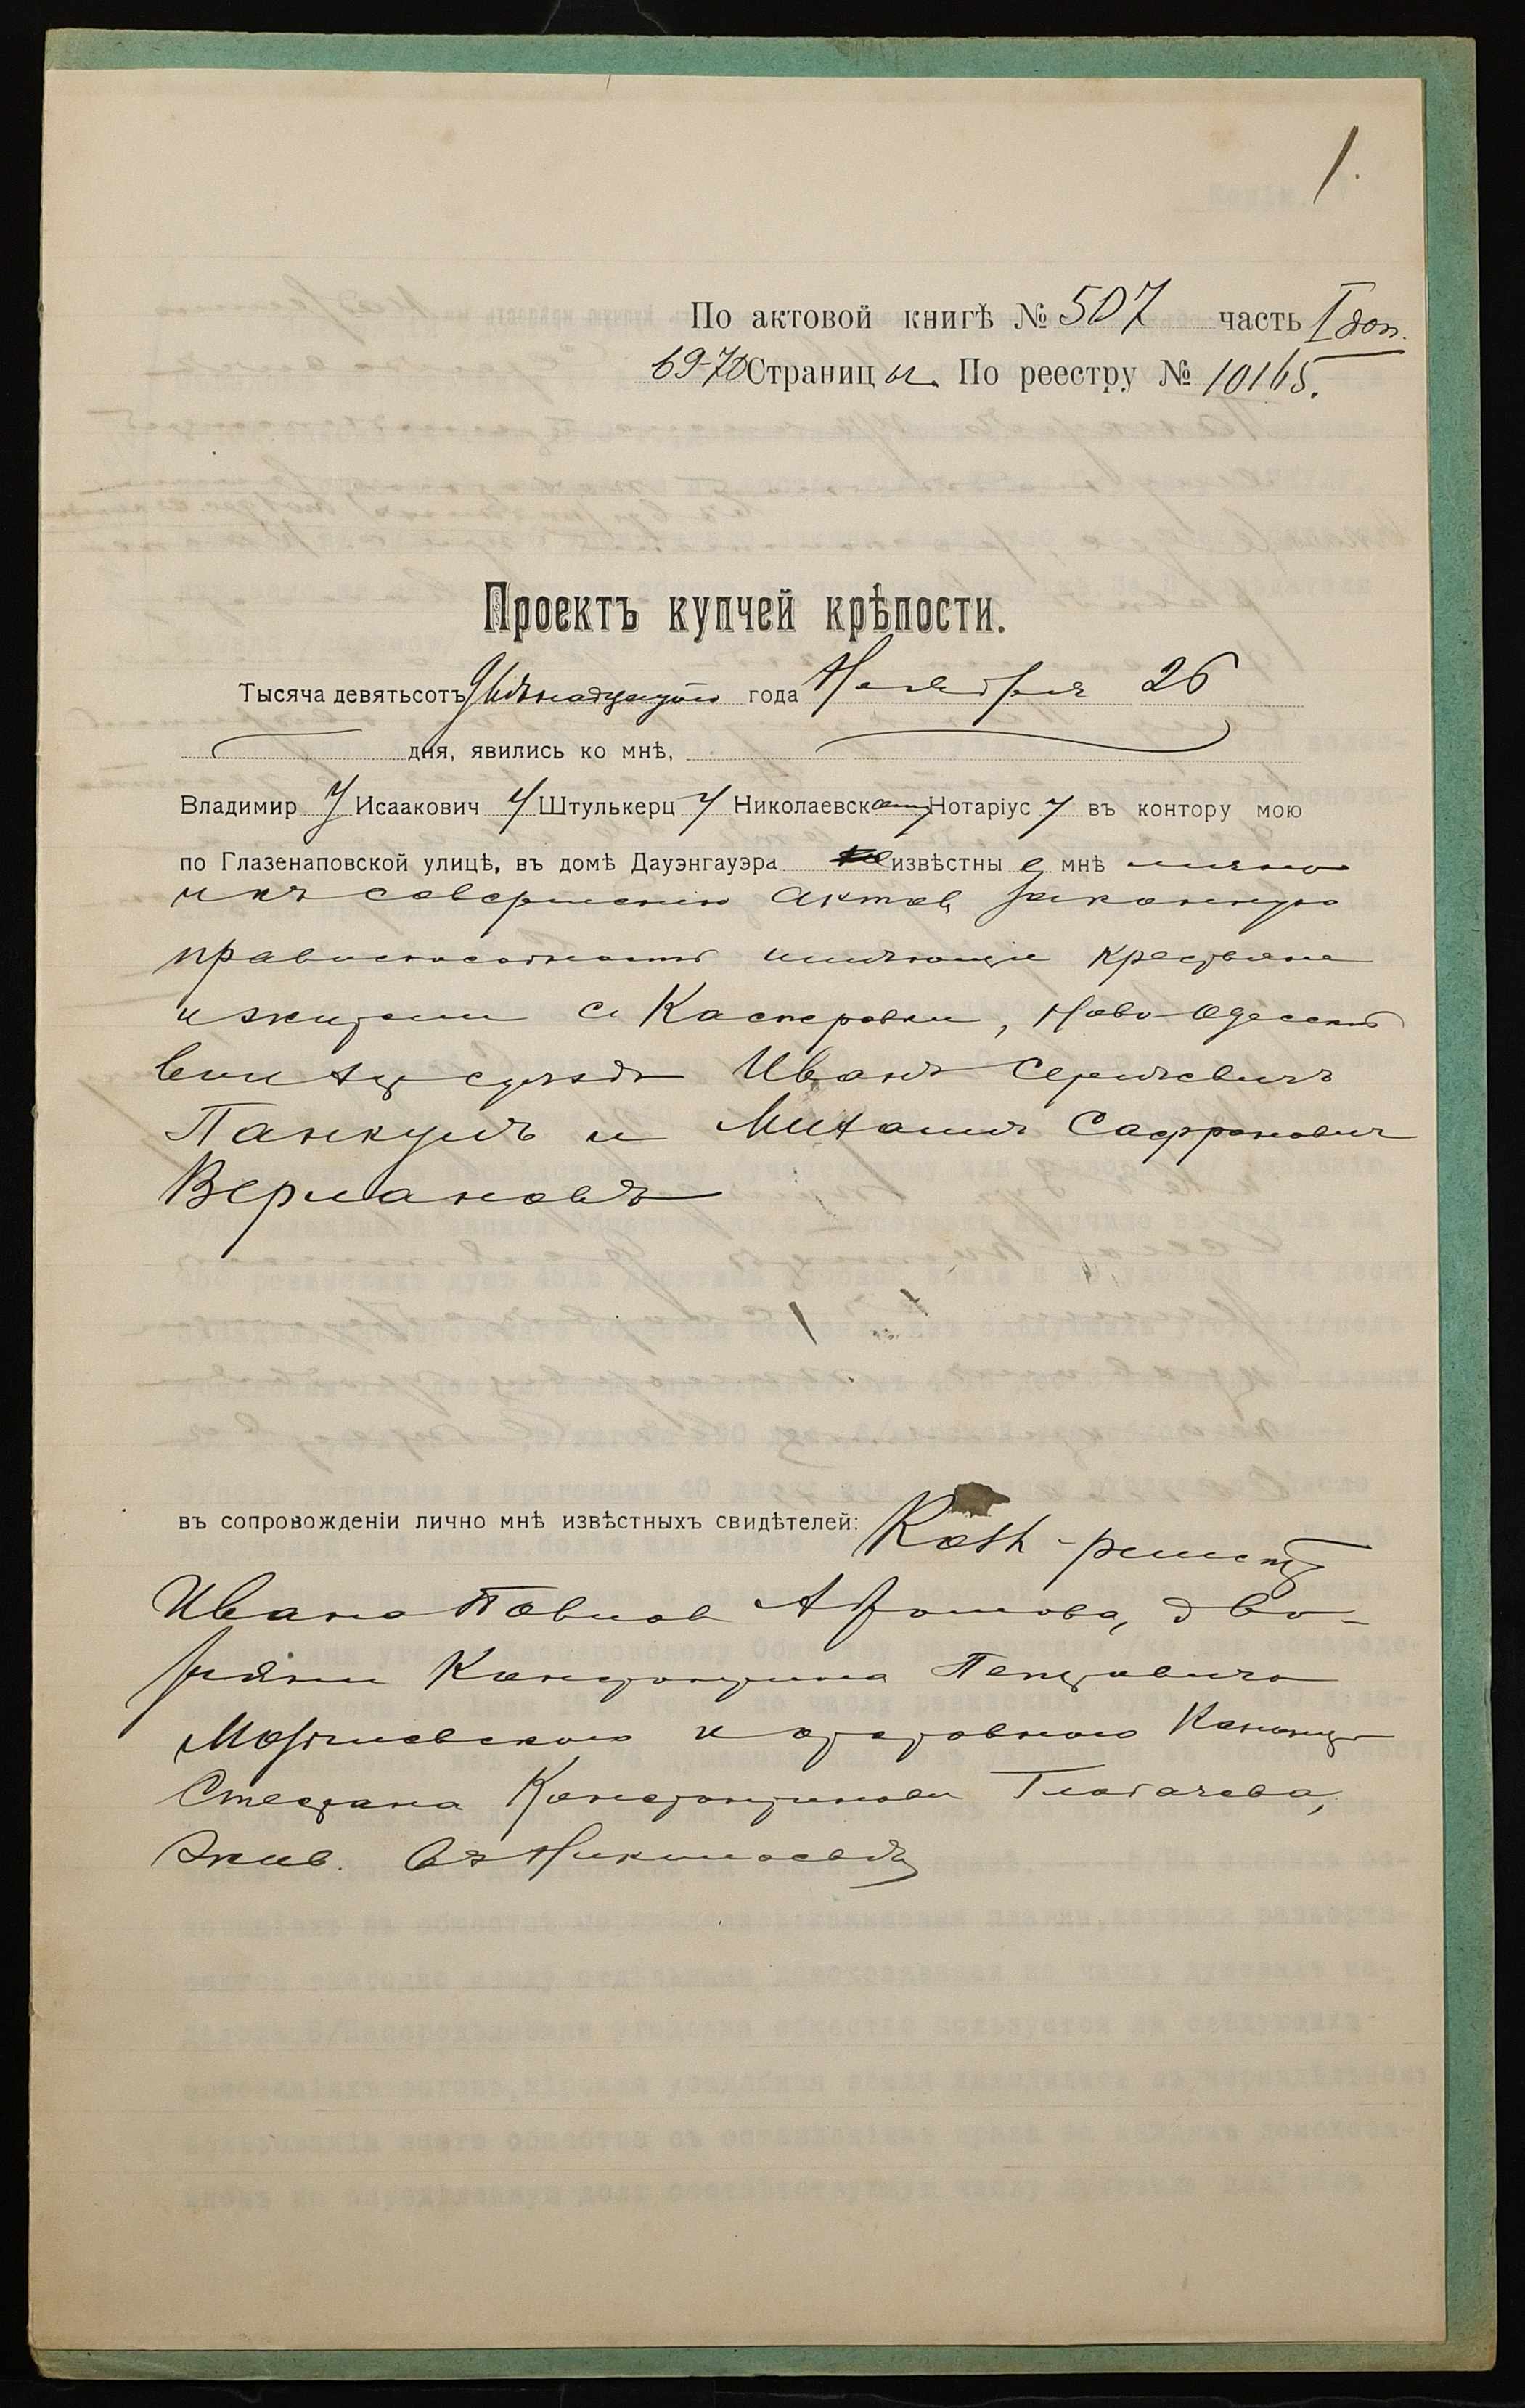 1.
По актовой книгѣ № 507 часть I доп.
69-70 Страницы. По реестру № 10165.
Проектъ купчей крѣпости.
Тысяча девятьсотъ года Ноября 26
дня, явились ко мнѣ,
Владимир Исаакович Штулькерц Николаевск Нотаріус въ контору мою
по Глазенаповской улицѣ, въ домѣ Дауэнгауэра извѣстные мнѣ лично
и къ совершенію актов законную
правоспособность имѣющіе крестьяне
и жители с Касперовки, Ново-Одесской
вол уѣзда Иванъ Сергѣевичъ
Панкулъ и Михаилъ Сафронович
Вермановъ
въ сопровожденіи лично мнѣ извѣстныхъ свидѣтелей:
Ивана Павлов дво-
рянин Константина Петровича
Могилевскаго и отставного
Стефана Константинова Глобачева,
Жив. въ Николаевѣ